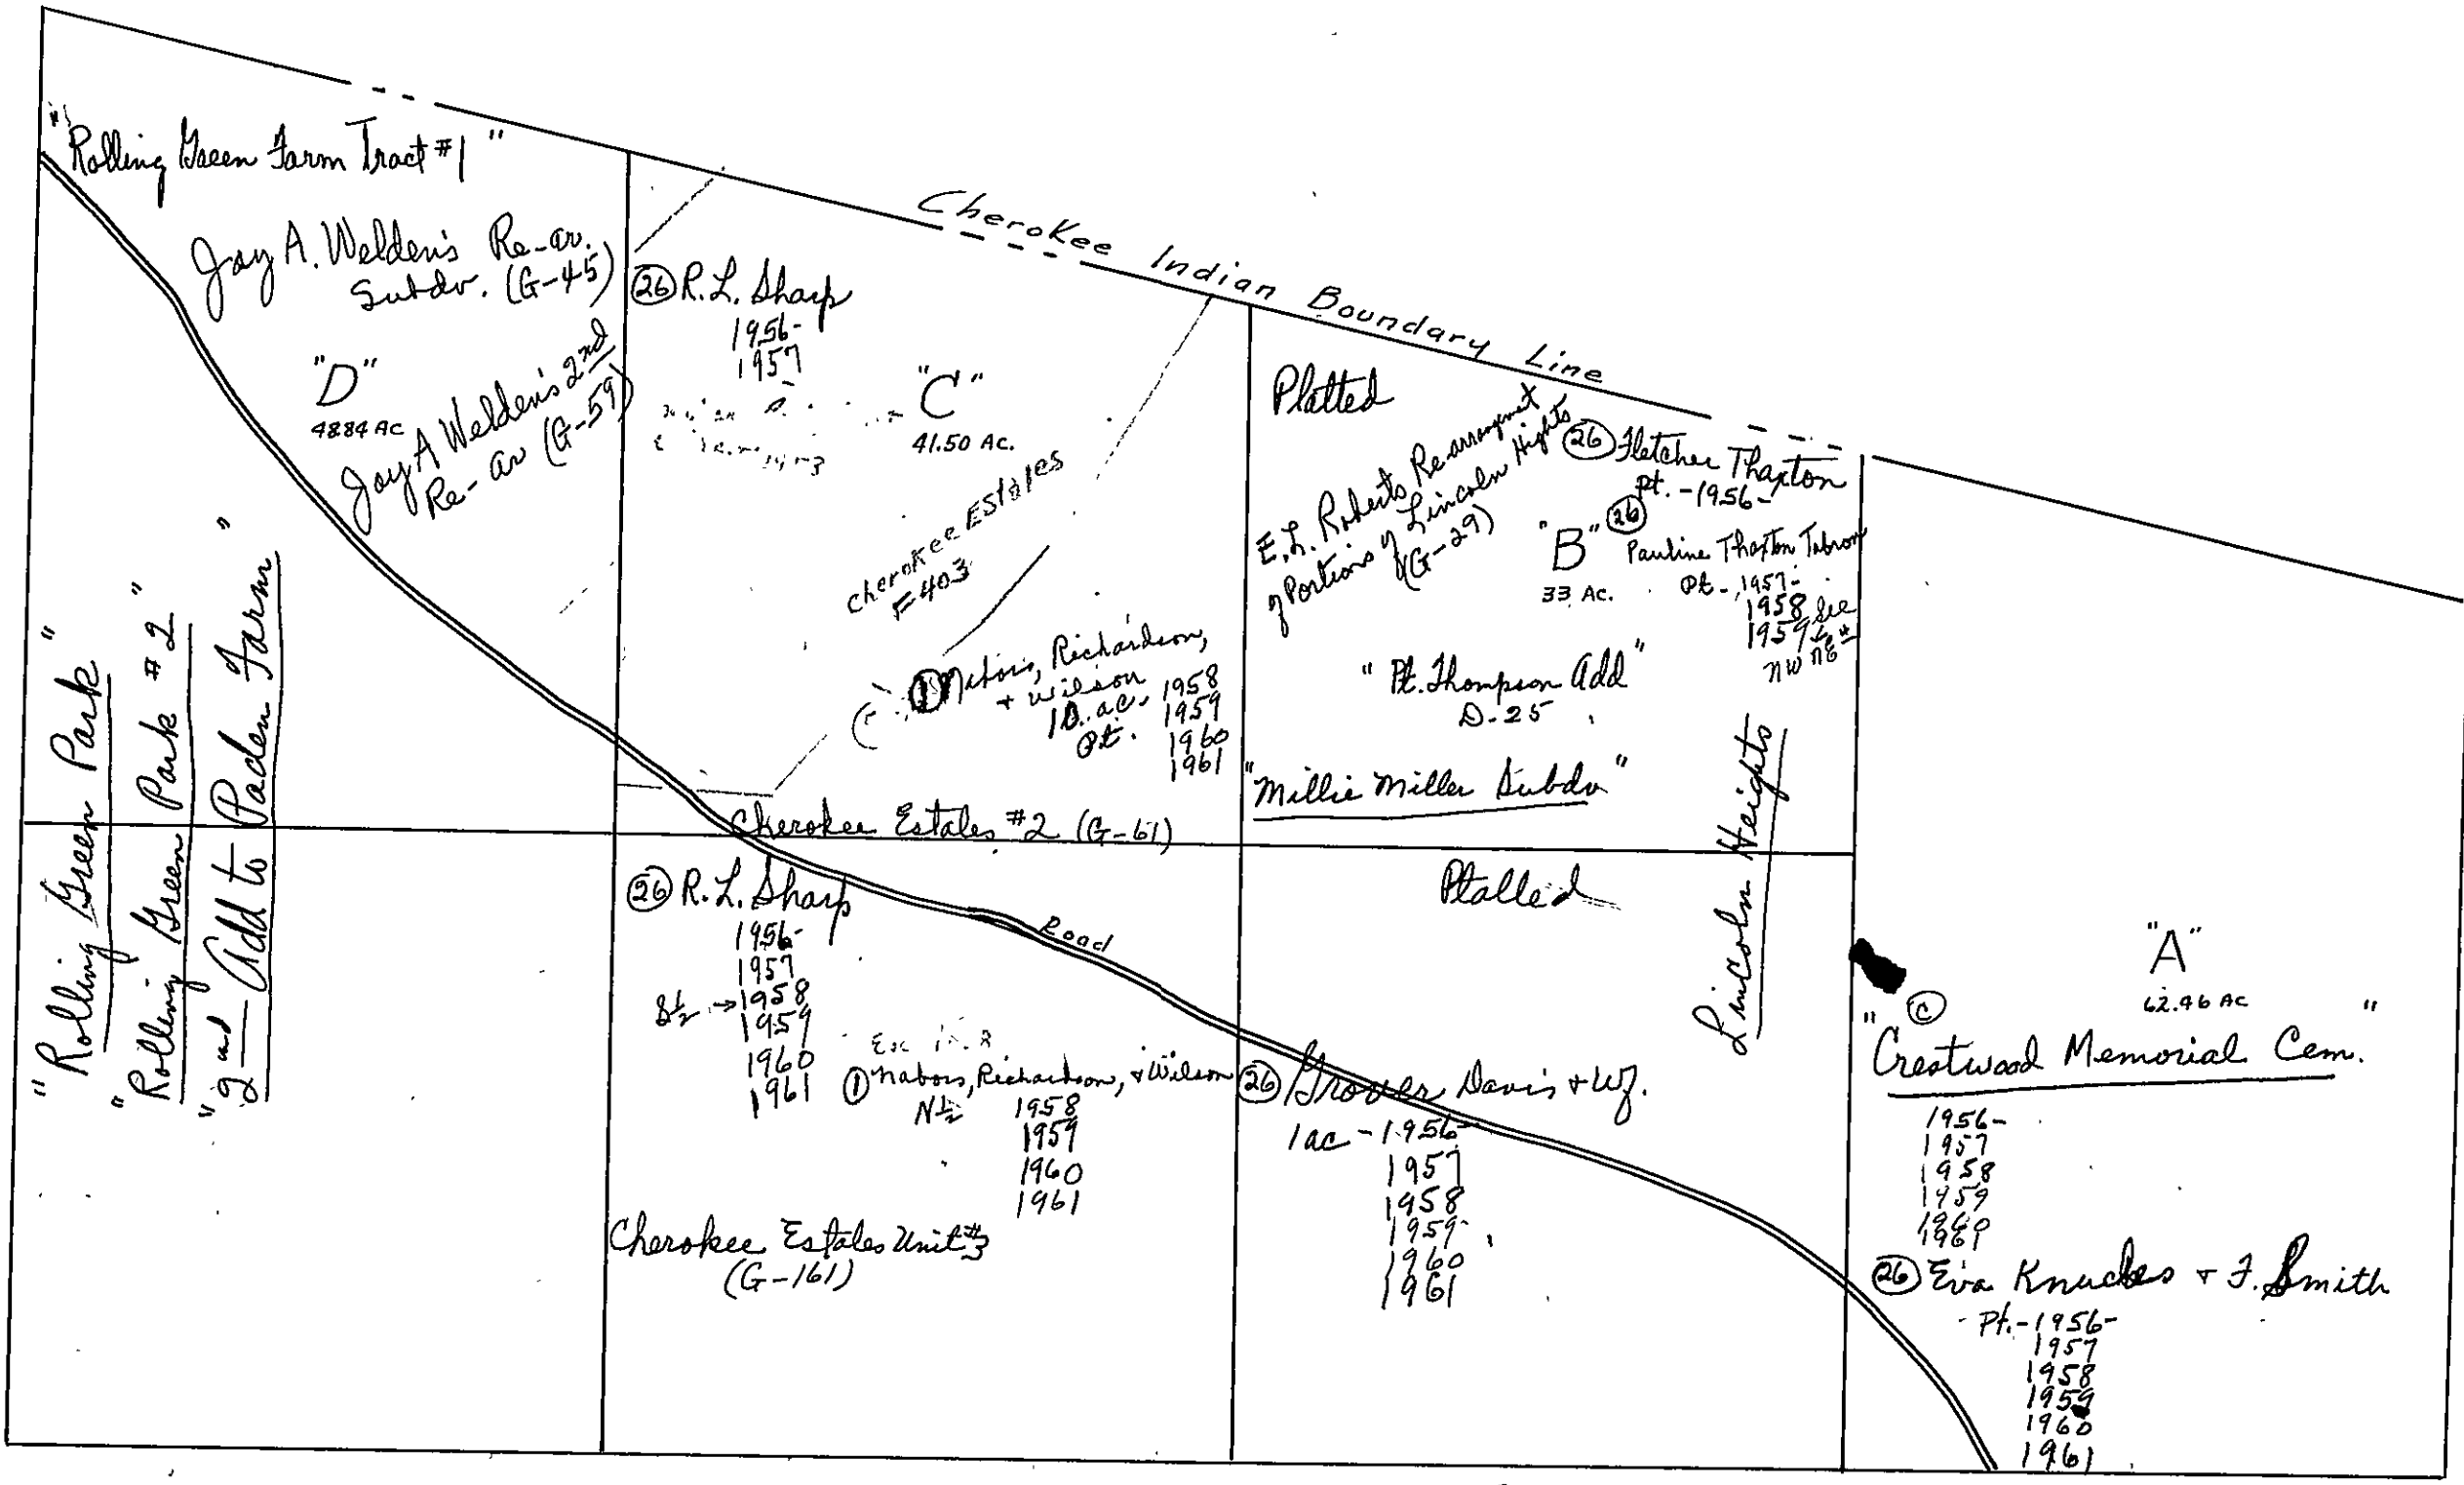 "Rolling Green Farm Tract #1"
Jay A. Welden's Re-ar.
Subdv. (G-45)
"D"
48.84 AC
Jay A Welden's 2nd
Re-ar (G-59)
"Rolling Green Park"
"Rolling Green Park #2"
"2nd Add to Paden Farm"
Cherokee Indian Boundary Line
(26) R.L. Sharp
1956-
1957
"C"
41.50 AC.
Cherokee Estates
F-403
(1) Nabors, Richardson,
+ Wilson
10. ac. 1958
Pt. 1959
1960
1961
Cherokee Estates #2 (G-61)
Platted
E.L. Roberts Re-arrangement
of Portions of Lincoln Hights
(G-29)
(26) Fletcher Thaxton
pt. -1956-
"B"
33 AC.
(26)
Pauline Thaxton Tabron
Pt - 1957-
1958 See
1959
NW NE
"Pt. Thompson Add"
D-25
"Millie Miller Subdv"
Lincoln Heights
(26) R.L. Sharp
1956-
1957
S½ → 1958
1959
1960
1961
Road
(1) Nabors, Richardson, + Wilson
N½ 1958
1959
1960
1961
Cherokee Estates Unit #3
(G-161)
Platted
(26) Grover Davis + Wf.
1ac - 1956-
1957
1958
1959-
1960
1961
"A"
62.46 AC
(C)
"Crestwood Memorial Cem."
1956-
1957
1958
1959
1960
1961
(26) Eva Knuckles + F. Smith
Pt.-1956-
1957
1958
1959
1960
1961